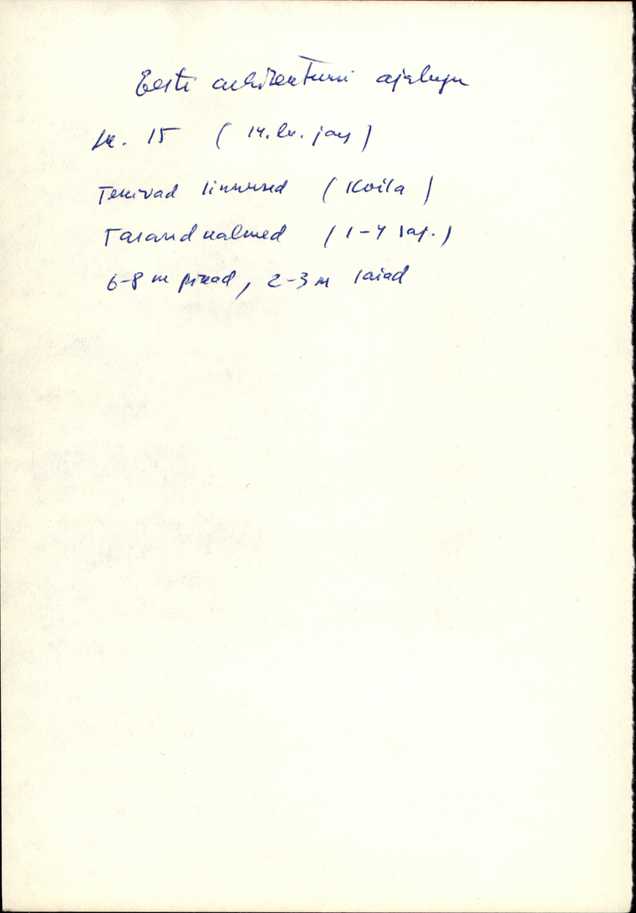 Eesti arhitektuuri ajalugu
lk. 15 (14. lk. järg)
Tekivad linnused (Koila)
Tarandkalmed (1-4 saj.)
6-8 m pikad, 2-3 m laiad